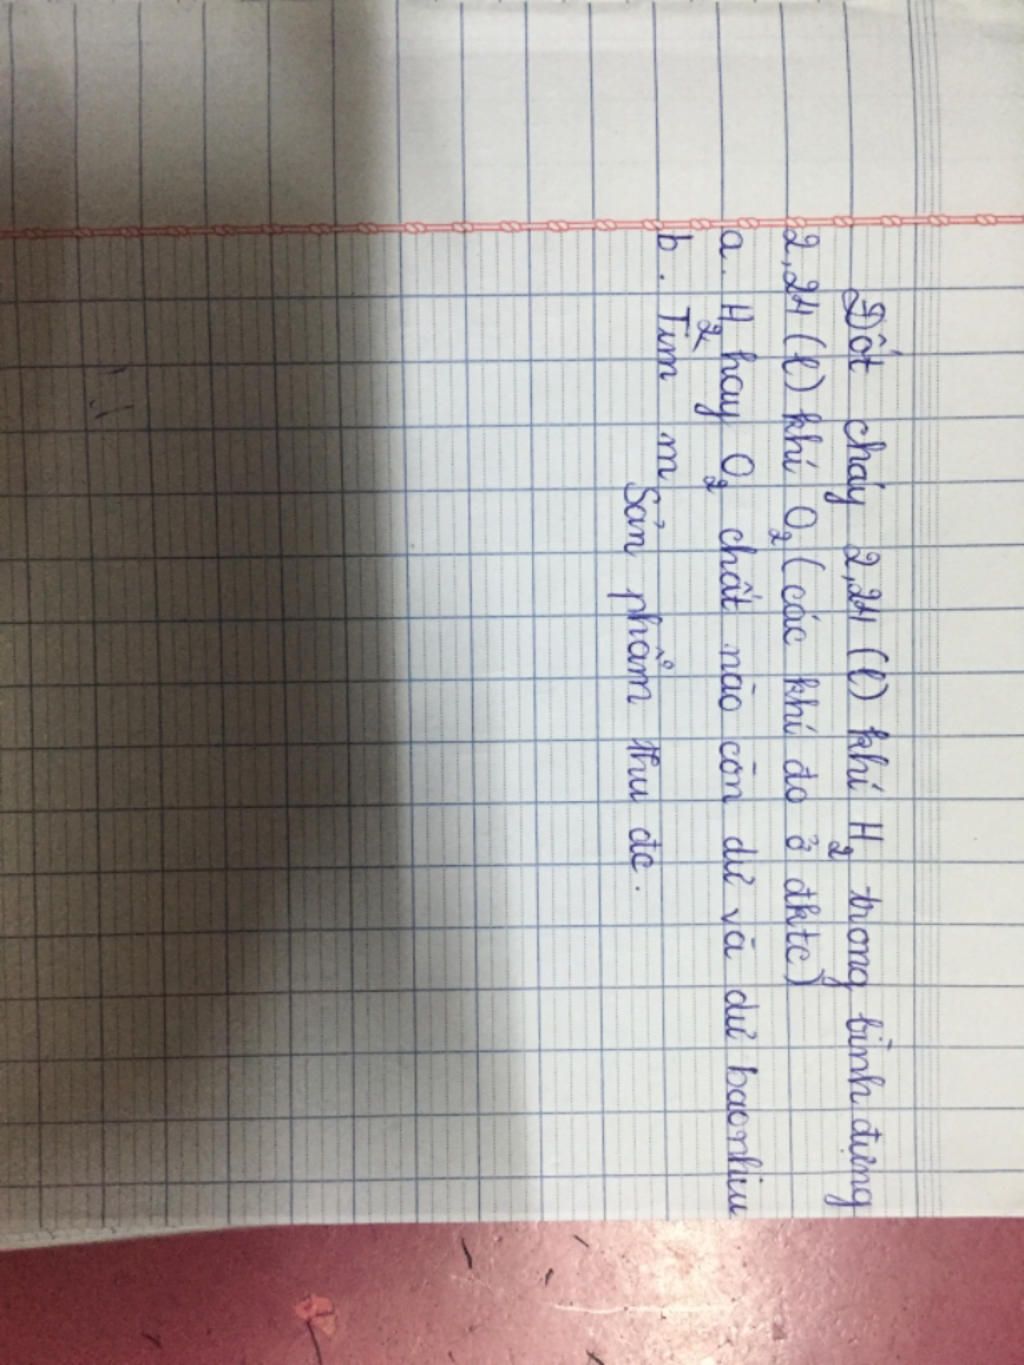 Đốt cháy 2,24 (l) khí H2 trong bình đựng
2,24 (l) khí O2 (các khí đo ở đktc)
a. H2 hay O2 chất nào còn dư và dư baonhiu
b. Tìm m
Sản phẩm thu đc.